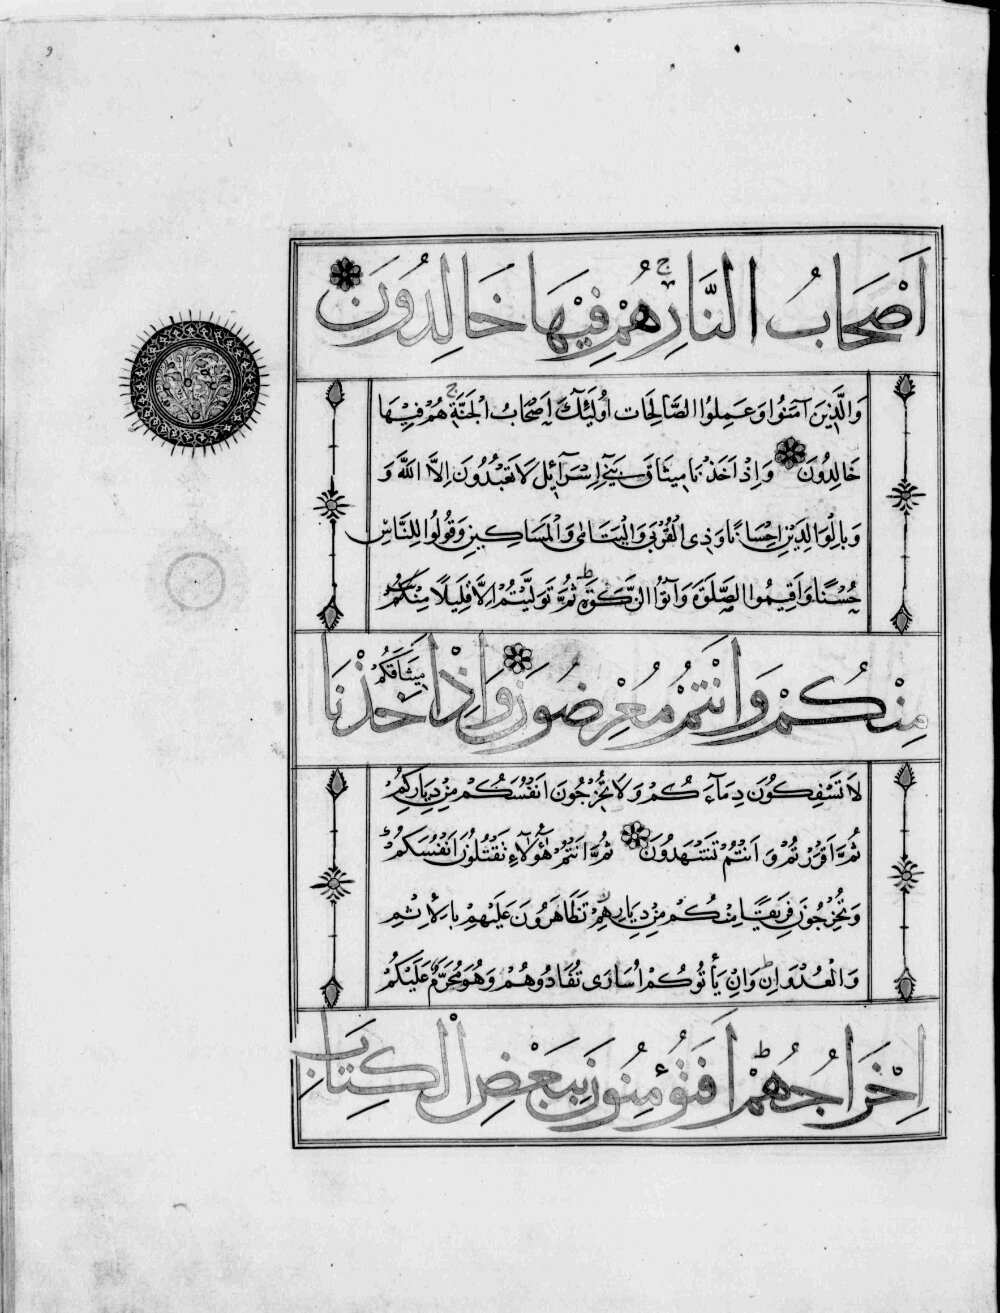 اَصْحَابُ النَّارِ هُمْ فِيْهَا خَالِدُوْنَ
وَالَّذِيْنَ آمَنُوا وَعَمِلُوا الصَّالِحَاتِ اُولٰئِكَ اَصْحَابُ الْجَنَّةِ هُمْ فِيْهَا
خَالِدُوْنَ وَاِذْ اَخَذْنَا مِيثَاقَ بَنِي اِسْرَآئِلَ لَا تَعْبُدُوْنَ اِلَّا اللّٰهَ وَ
وَبِالْوَالِدَيْنِ اِحْسَانًا وَذِى الْقُرْبٰى وَالْيَتَامٰى وَالْمَسَاكِيْنِ وَقُولُوا لِلنَّاسِ
حُسْنًا وَاَقِيْمُوا الصَّلٰوةَ وَآتُوا الزَّكٰوةَ ثُمَّ تَوَلَّيْتُمْ اِلَّا قَلِيْلًا مِنْكُمْ
مِنْكُمْ وَاَنْتُمْ مُعْرِضُوْنَ وَاِذْ اَخَذْنَا مِيْثَاقَكُمْ
لَا تَسْفِكُوْنَ دِمَآءَكُمْ وَلَا تُخْرِجُوْنَ اَنْفُسَكُمْ مِنْ دِيَارِكُمْ
ثُمَّ اَقْرَرْتُمْ وَ اَنْتُمْ تَشْهَدُوْنَ ثُمَّ اَنْتُمْ هٰٓؤُلَآءِ تَقْتُلُوْنَ اَنْفُسَكُمْ
وَتُخْرِجُوْنَ فَرِيْقًا مِنْكُمْ مِنْ دِيَارِهِمْ تَظَاهَرُوْنَ عَلَيْهِمْ بِالْاِثْمِ
وَالْعُدْوَانِ وَاِنْ يَأْتُوْكُمْ اُسَارٰى تُفَادُوهُمْ وَهُوَ مُحَرَّمٌ عَلَيْكُمْ
اِخْرَاجُهُمْ اَفَتُؤْمِنُوْنَ بِبَعْضِ الْكِتَابِ